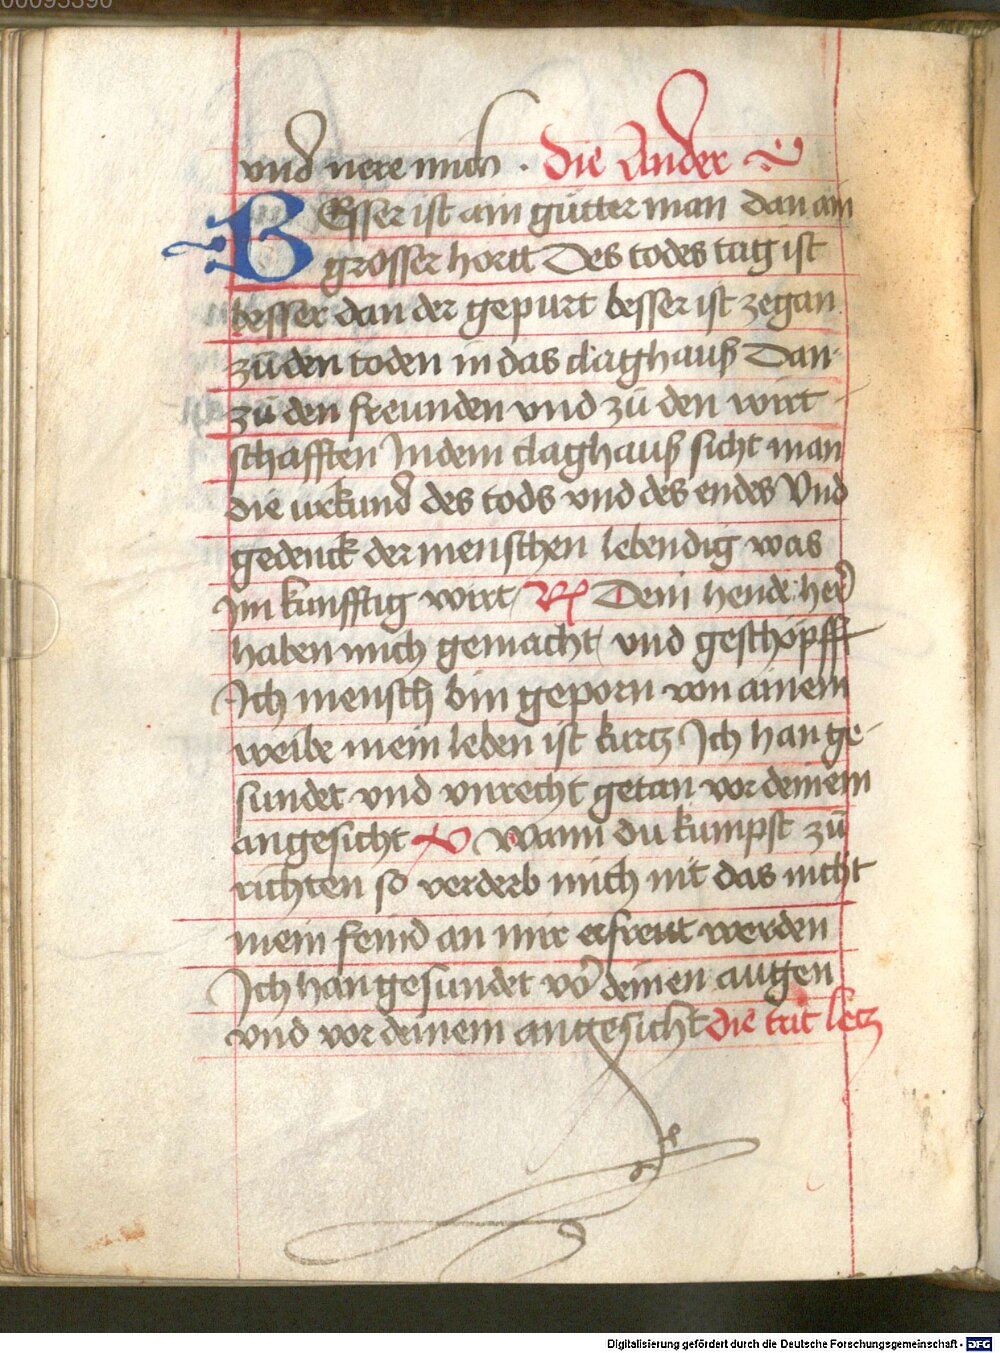 00095390
vnd nere mich · die Ander
BEsser ist ain gutter man dan ain
grosser hortt Des todes tag ist
besser dan der gepurt besser ist zegan
zů den toden in das claghauß Dan-
zů den freunden vnd zů den wirt-
schafften Jn dem claghauß sicht man
die urkund des tods vnd des endes Vnd
gedenck der menschen lebendig was
im kunfftig wirt Rx Dein hende her
haben mich gemacht vnd geschöpfft
Jch mensch bin geporn von ainem
weibe mein leben ist kurtz Jch han ge-
sundet vnd vnrecht getan vor deinem
angesicht V Wann du kumpst zů
richten so verderb mich nit das nicht
mein feind an mir erfreut werden
Jch han gesundet vor deinen augen
vnd vor deinem angesicht die trit letz
Digitalisierung gefördert durch die Deutsche Forschungsgemeinschaft - DFG